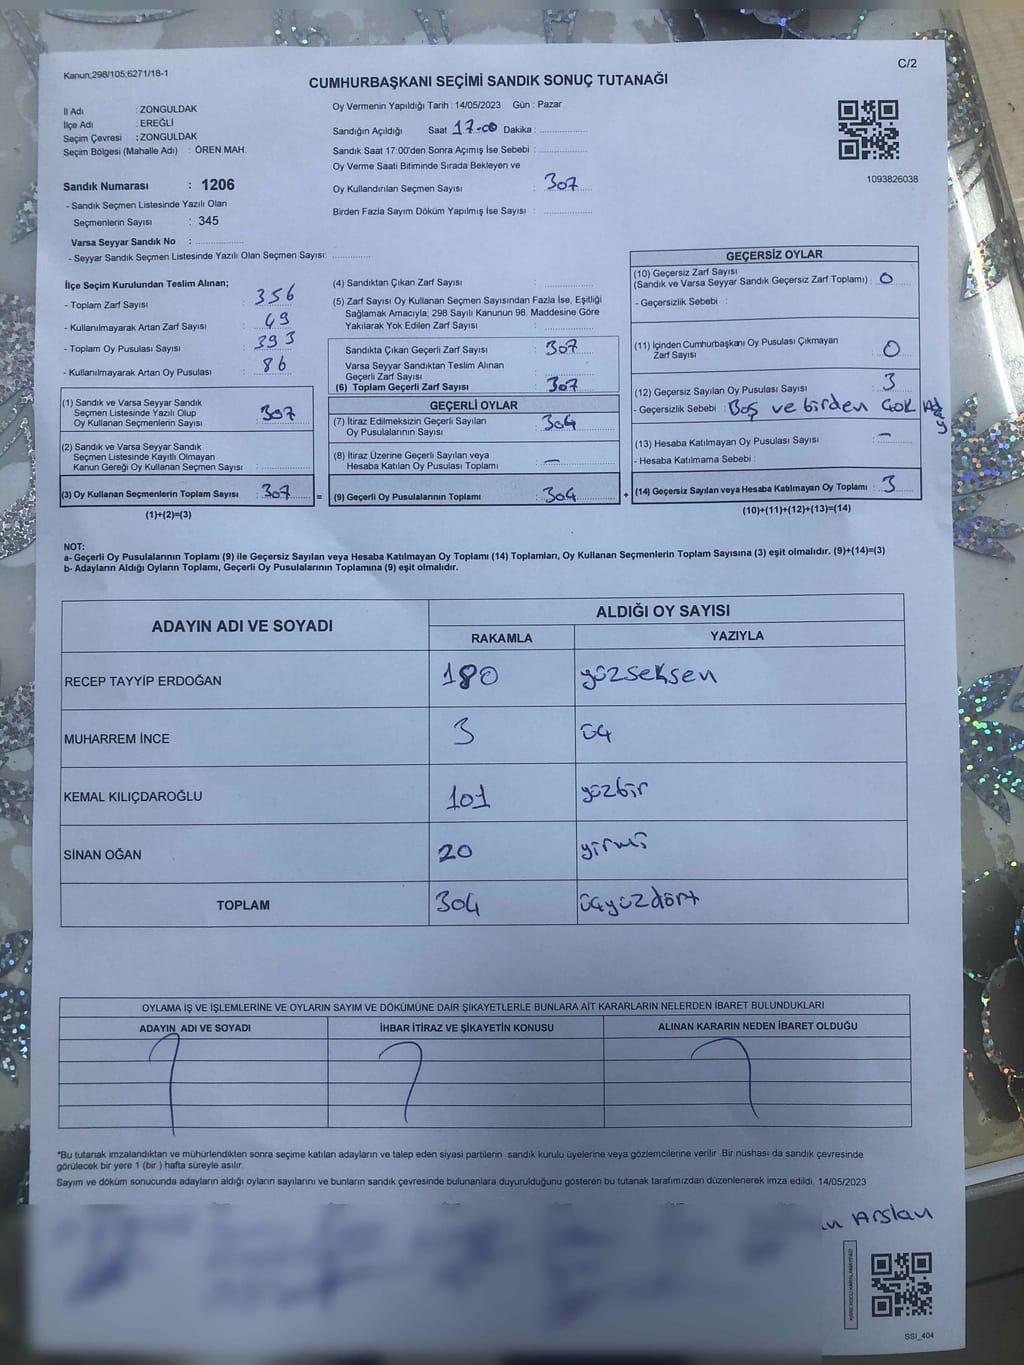 Kanun;298/105;6271/18-1
C/2
CUMHURBAŞKANI SEÇİMİ SANDIK SONUÇ TUTANAĞI
İl Adı : ZONGULDAK
İlçe Adı : EREĞLİ
Seçim Çevresi : ZONGULDAK
Seçim Bölgesi (Mahalle Adı) : ÖREN MAH.
Sandık Numarası : 1206
- Sandık Seçmen Listesinde Yazılı Olan
Seçmenlerin Sayısı : 345
Varsa Seyyar Sandık No :
- Seyyar Sandık Seçmen Listesinde Yazılı Olan Seçmen Sayısı:
Oy Vermenin Yapıldığı Tarih : 14/05/2023 Gün : Pazar
Sandığın Açıldığı Saat 17.00 Dakika :
Sandık Saat 17:00'den Sonra Açımış İse Sebebi :
Oy Verme Saati Bitiminde Sırada Bekleyen ve
Oy Kullandırılan Seçmen Sayısı : 307
Birden Fazla Sayım Döküm Yapılmış İse Sayısı :
1093826038
İlçe Seçim Kurulundan Teslim Alınan;
- Toplam Zarf Sayısı : 356
- Kullanılmayarak Artan Zarf Sayısı : 49
- Toplam Oy Pusulası Sayısı : 393
- Kullanılmayarak Artan Oy Pusulası : 86
(1) Sandık ve Varsa Seyyar Sandık
Seçmen Listesinde Yazılı Olup
Oy Kullanan Seçmenlerin Sayısı : 307
(2) Sandık ve Varsa Seyyar Sandık
Seçmen Listesinde Kayıtlı Olmayan
Kanun Gereği Oy Kullanan Seçmen Sayısı :
(3) Oy Kullanan Seçmenlerin Toplam Sayısı : 307 =
(1)+(2)=(3)
(4) Sandıktan Çıkan Zarf Sayısı :
(5) Zarf Sayısı Oy Kullanan Seçmen Sayısından Fazla İse, Eşitliği
Sağlamak Amacıyla; 298 Sayılı Kanunun 98. Maddesine Göre
Yakılarak Yok Edilen Zarf Sayısı :
Sandıkta Çıkan Geçerli Zarf Sayısı : 307
Varsa Seyyar Sandıktan Teslim Alınan
Geçerli Zarf Sayısı :
(6) Toplam Geçerli Zarf Sayısı : 307
GEÇERLİ OYLAR
(7) İtiraz Edilmeksizin Geçerli Sayılan
Oy Pusulalarının Sayısı : 304
(8) İtiraz Üzerine Geçerli Sayılan veya
Hesaba Katılan Oy Pusulası Toplamı : —
(9) Geçerli Oy Pusulalarının Toplamı : 304 +
GEÇERSİZ OYLAR
(10) Geçersiz Zarf Sayısı
(Sandık ve Varsa Seyyar Sandık Geçersiz Zarf Toplamı) : 0
- Geçersizlik Sebebi :
(11) İçinden Cumhurbaşkanı Oy Pusulası Çıkmayan
Zarf Sayısı : 0
(12) Geçersiz Sayılan Oy Pusulası Sayısı : 3
- Geçersizlik Sebebi : Boş ve birden çok
(13) Hesaba Katılmayan Oy Pusulası Sayısı : —
- Hesaba Katılmama Sebebi :
(14) Geçersiz Sayılan veya Hesaba Katılmayan Oy Toplamı : 3
(10)+(11)+(12)+(13)=(14)
NOT:
a- Geçerli Oy Pusulalarının Toplamı (9) ile Geçersiz Sayılan veya Hesaba Katılmayan Oy Toplamı (14) Toplamları, Oy Kullanan Seçmenlerin Toplam Sayısına (3) eşit olmalıdır. (9)+(14)=(3)
b- Adayların Aldığı Oyların Toplamı, Geçerli Oy Pusulalarının Toplamına (9) eşit olmalıdır.
ADAYIN ADI VE SOYADI
ALDIĞI OY SAYISI
RAKAMLA YAZIYLA
RECEP TAYYİP ERDOĞAN 180 yüzseksen
MUHARREM İNCE 3 üç
KEMAL KILIÇDAROĞLU 101 yüzbir
SİNAN OĞAN 20 yirmi
TOPLAM 304 üçyüzdört
OYLAMA İŞ VE İŞLEMLERİNE VE OYLARIN SAYIM VE DÖKÜMÜNE DAİR ŞİKAYETLERLE BUNLARA AİT KARARLARIN NELERDEN İBARET BULUNDUKLARI
ADAYIN ADI VE SOYADI İHBAR İTİRAZ VE ŞİKAYETİN KONUSU ALINAN KARARIN NEDEN İBARET OLDUĞU
*Bu tutanak imzalandıktan ve mühürlendikten sonra seçime katılan adayların ve talep eden siyasi partilerin sandık kurulu üyelerine veya gözlemcilerine verilir .Bir nüshası da sandık çevresinde
görülecek bir yere 1 (bir ) hafta süreyle asılır.
Sayım ve döküm sonucunda adayların aldığı oyların sayılarını ve bunların sandık çevresinde bulunanlara duyurulduğunu gösteren bu tutanak tarafımızdan düzenlenerek imza edildi. 14/05/2023
Arslan
SSI_404